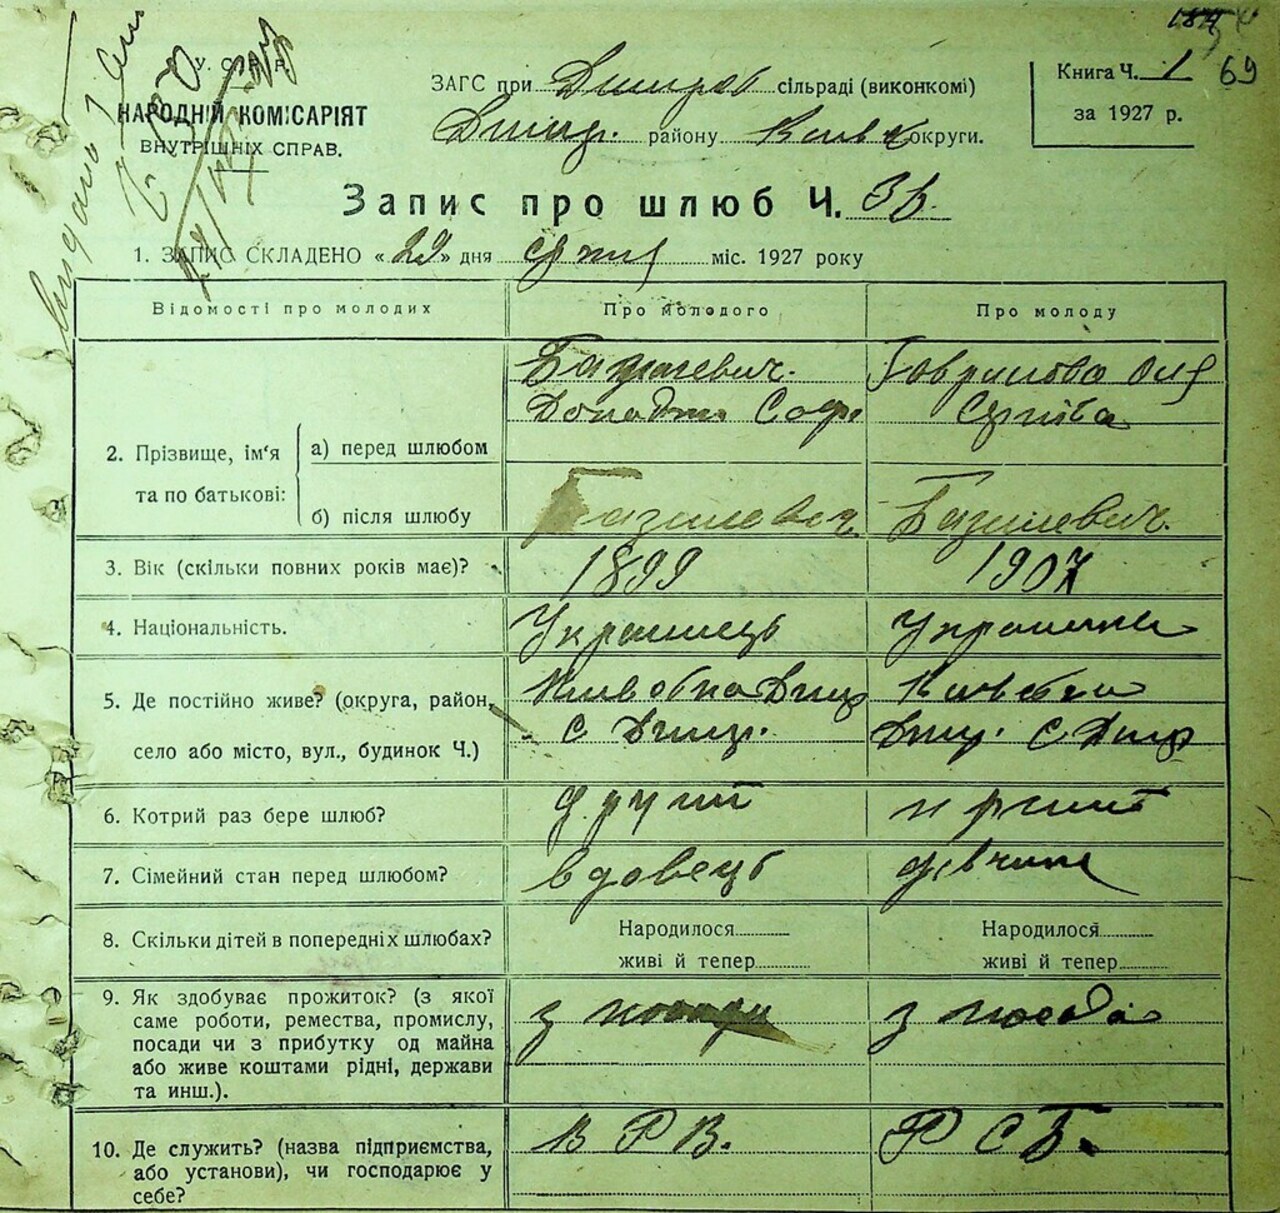 184
69
У. С. Р. Р.
НАРОДНІЙ КОМІСАРІЯТ
ВНУТРІШНІХ СПРАВ.
ЗАГС при Димерск сільраді (виконкомі)
Димер. району Київск округи.
Книга Ч. 1
за 1927 р.
Запис про шлюб Ч. 36.
1. ЗАПИС СКЛАДЕНО «29» дня міс. 1927 року
Відомості про молодих Про молодого Про молоду
2. Прізвище, ім'я та по батькові:
а) перед шлюбом
Базилевич.
Соф.
Гаврилова
Сергіївна
б) після шлюбу
Базилевич. Базилевич.
3. Вік (скільки повних років має)? 1899 1907
4. Національність. Українець Українка
5. Де постійно живе? (округа, район, село або місто, вул., будинок Ч.)
С Димер.
Димер. С Димер
6. Котрий раз бере шлюб? другий перший
7. Сімейний стан перед шлюбом? вдовець дівчина
8. Скільки дітей в попередніх шлюбах? Народилося Народилося
живі й тепер живі й тепер
9. Як здобуває прожиток? (з якої
саме роботи, ремества, промислу,
посади чи з прибутку од майна
або живе коштами рідні, держави
та инш.).
з посади з посади
10. Де служить? (назва підприємства,
або установи), чи господарює у
себе?
В Р В. Р С Б.